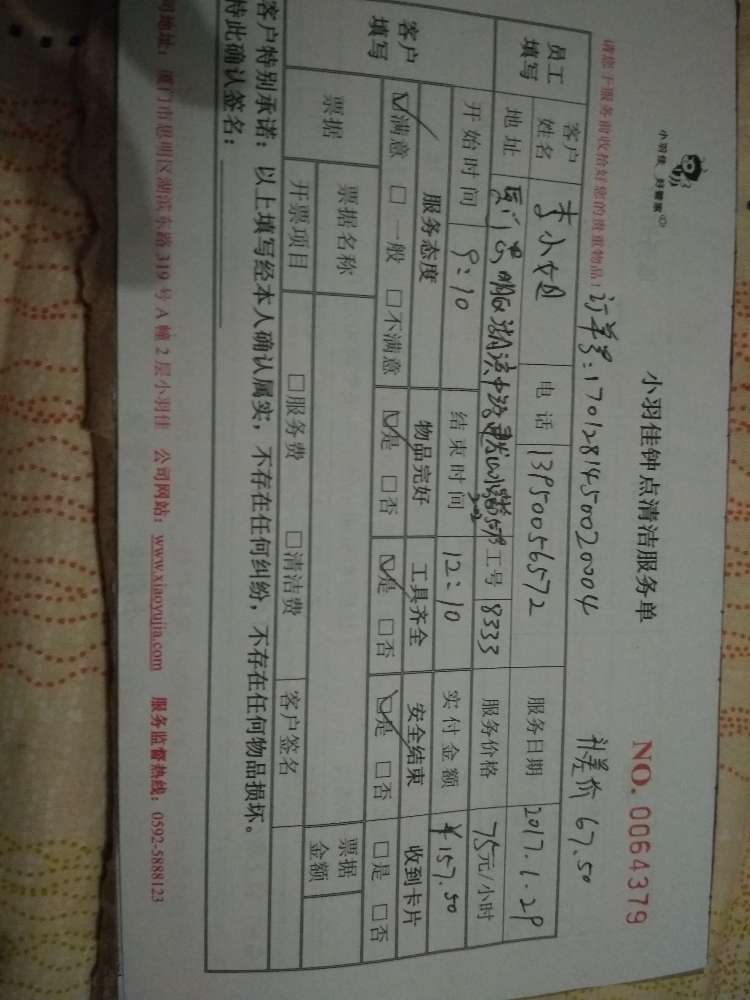 小羽佳 好管家
小羽佳钟点清洁服务单
NO. 0064379
请您于服务前收拾好您的贵重物品!
订单号:1701281450020004
补差价 67.50
员工填写
客户姓名 李小姐 电话 13950056572 服务日期 2017.1.29
地址 厦门 明 湖滨中路 工号 8333 服务价格 75元/小时
客户填写
开始时间 9:10 结束时间 12:10 实付金额 ¥157.50
服务态度 物品完好 工具齐全 安全结束 收到卡片
☑满意 □一般 □不满意 ☑是 □否 ☑是 □否 ☑是 □否 □是 □否
票据 票据名称 票据金额
开票项目 □服务费 □清洁费 客户签名
客户特别承诺:以上填写经本人确认属实,不存在任何纠纷,不存在任何物品损坏。
特此确认签名:
司地址:厦门市思明区湖滨东路319号A幢2层小羽佳 公司网站:www.xiaoyujia.com 服务监督热线:0592-5888123